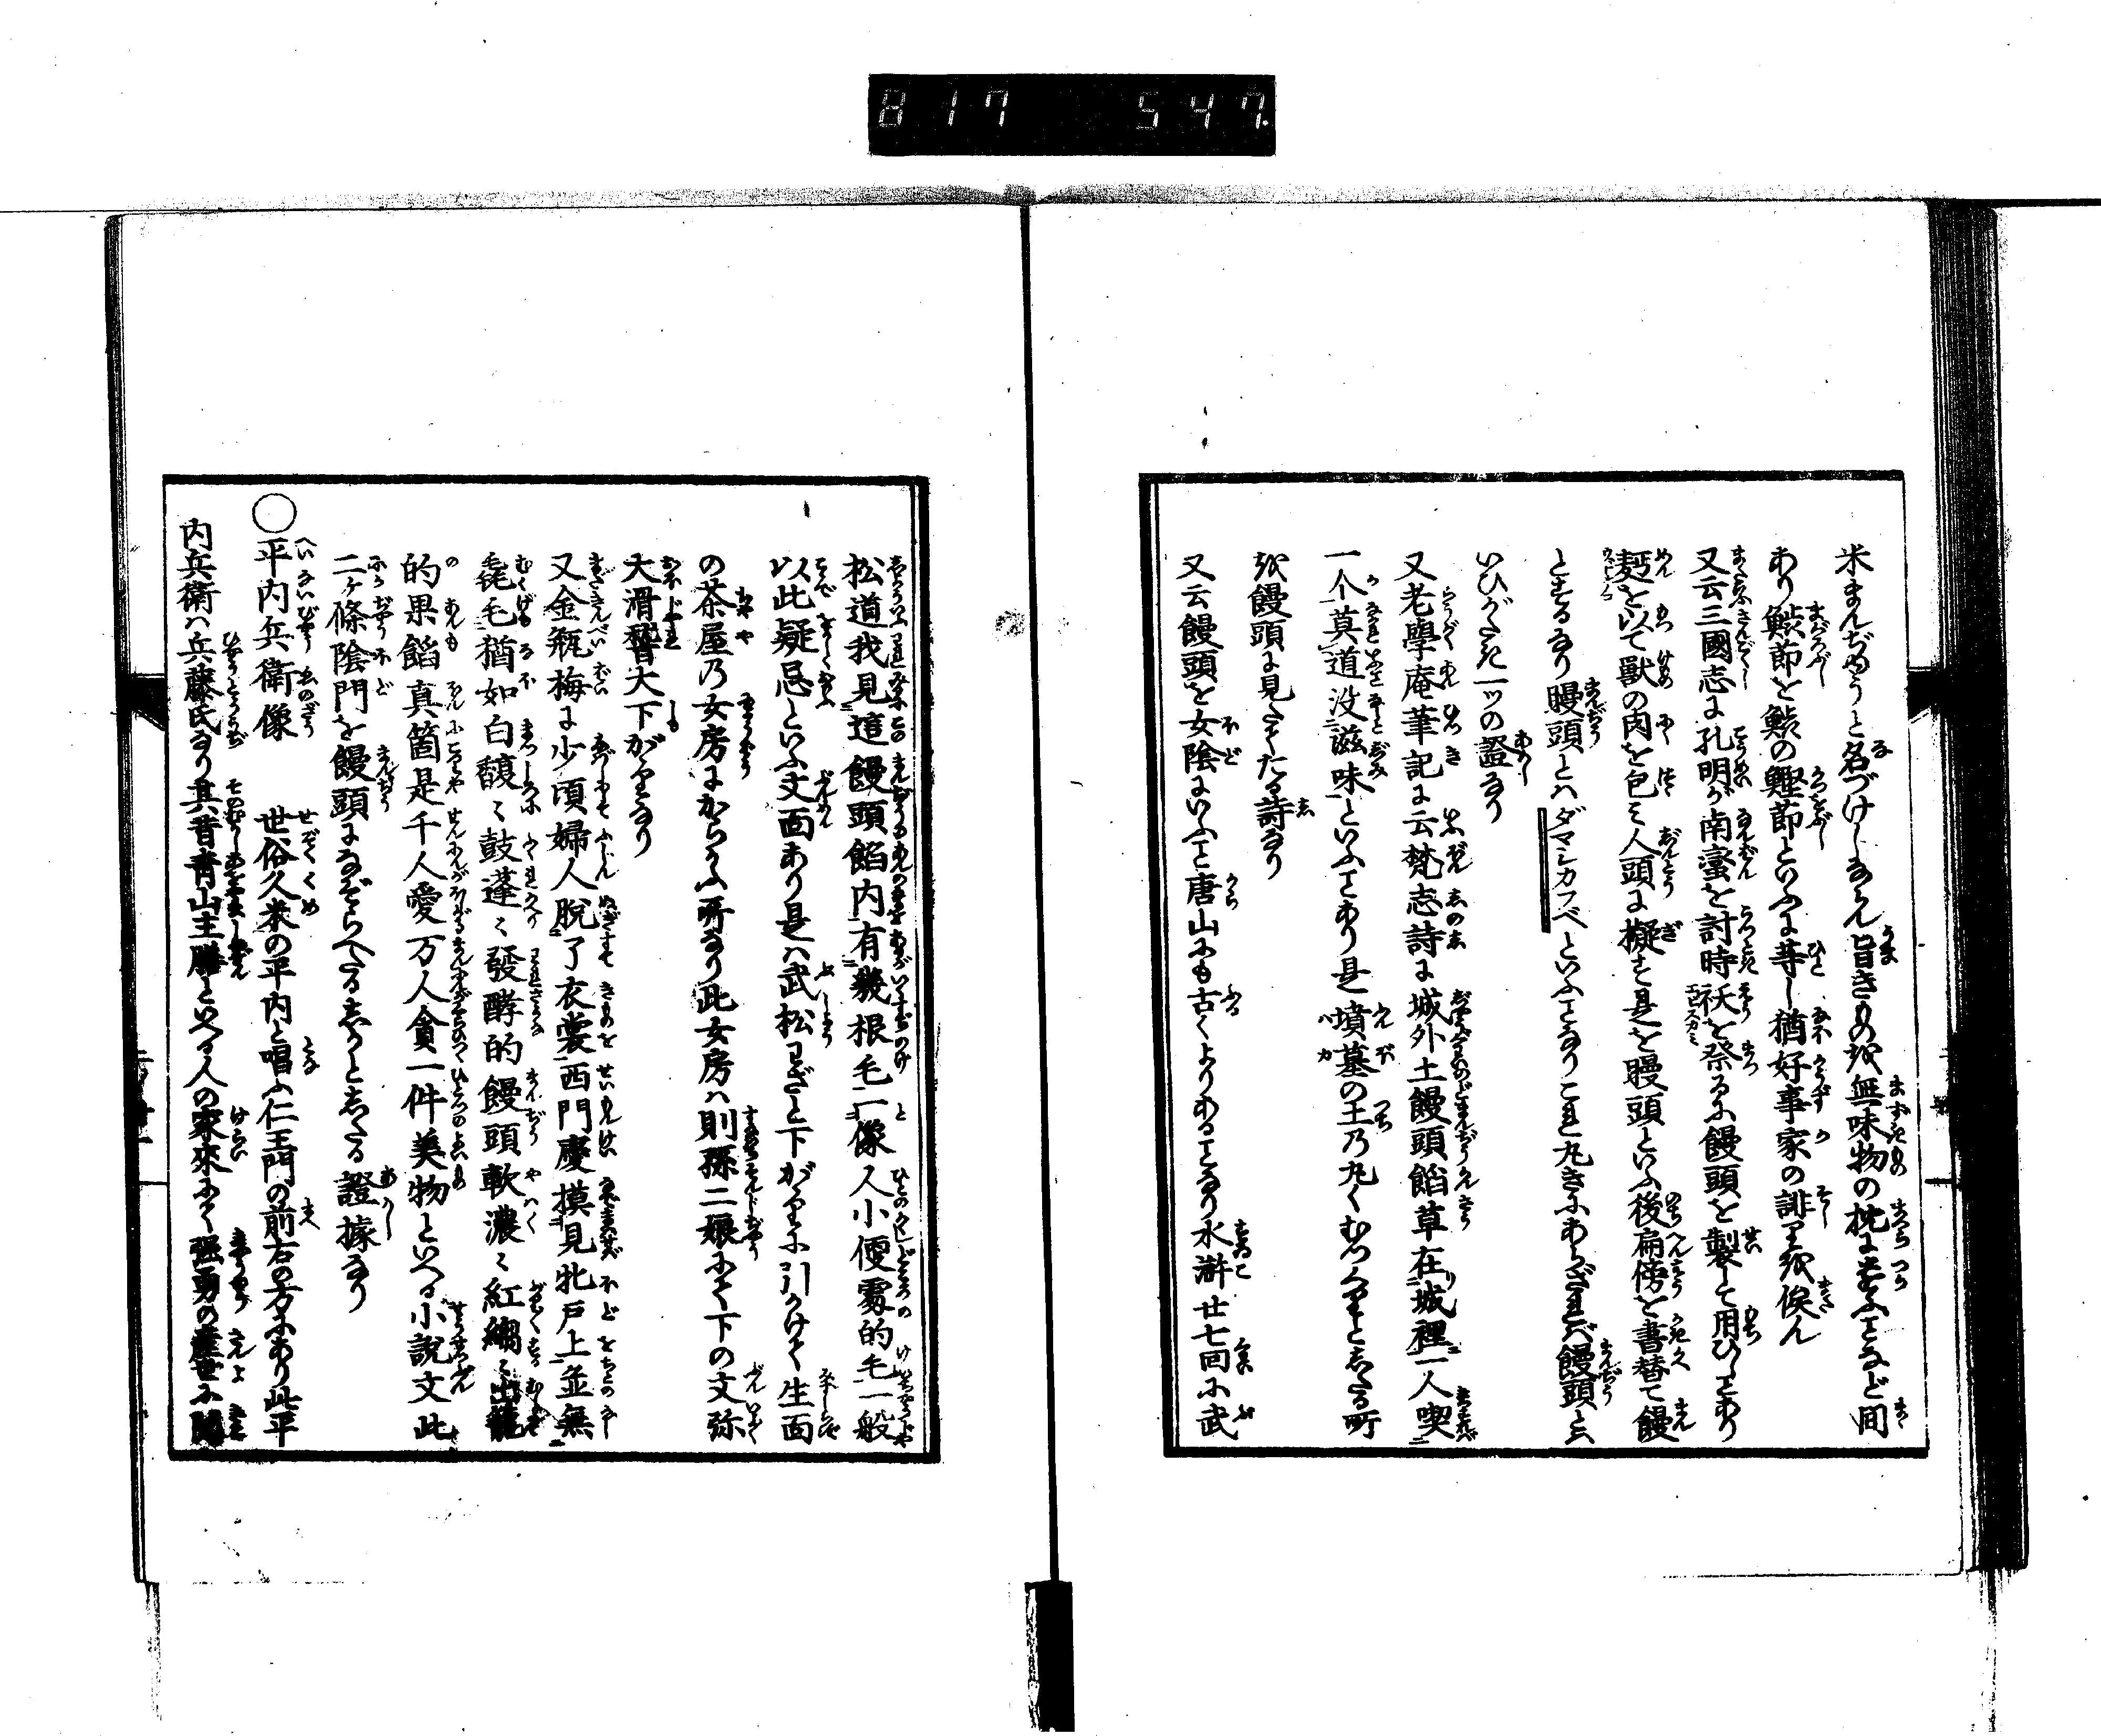 817 547.
米まんぢゆうと名づけしならん旨きもの哉無味物の枕によふことなど間
あり鮫節を鮫の鰹節といふに等し猶好事家の誹りを俟ん
又云三國志に孔明が南蠻を討時祆を祭るに饅頭を製して用ひしことあり
麪を以て獣の肉を包ミ人頭に擬す是を瞞頭といふ後扁傍を書替て饅
とするなり瞞頭とハダマシカウベといふことなりこれ丸きにあらざれバ饅頭と云
いひがたき一ツの證なり
又老學庵筆記に云梵志詩に城外土饅頭餡草在城裡一人喫
一个莫道没滋味といふことあり是墳墓の土の丸くむつくりとしたる所
を饅頭に見たてたる詩なり
又云饅頭を女陰にいふこと唐山にも古くよりあることなり水滸廿七回に武
松道我見這饅頭餡内有幾根毛一像人小便處的毛一般
以此疑忌といふ文面あり是ハ武松わざと下がゝりに引かけて生面
の茶屋の女房にからかふ所なり此女房ハ則孫二娘にて下の文弥
大滑稽大下がゝりなり
又金瓶梅に少頃婦人脱了衣裳西門慶摸見牝戸上並無
毳毛猶如白馥ミ鼓蓬ミ發酵的饅頭軟濃ミ紅縐ミ出籠
的果餡真箇是千人愛万人貪一件美物といへる小説文此
二ヶ條陰門を饅頭になぞらへたるしかとしたる證據なり
○平内兵衛像 世俗久米の平内と唱ふ仁王門の前右の方にあり此平
内兵衛ハ兵藤氏なり其昔青山主膳といへる人の家来にて強勇の産世に聞